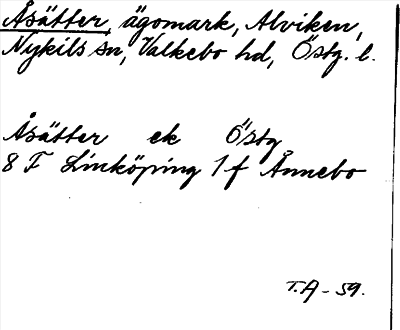 Åsätter, ägomark, Alviken,
Nykils sn, Valkebo hd, Östg. l.
Åsätter ek Östg
8 F Linköping 1 f Ånnebo
T.A - 59.